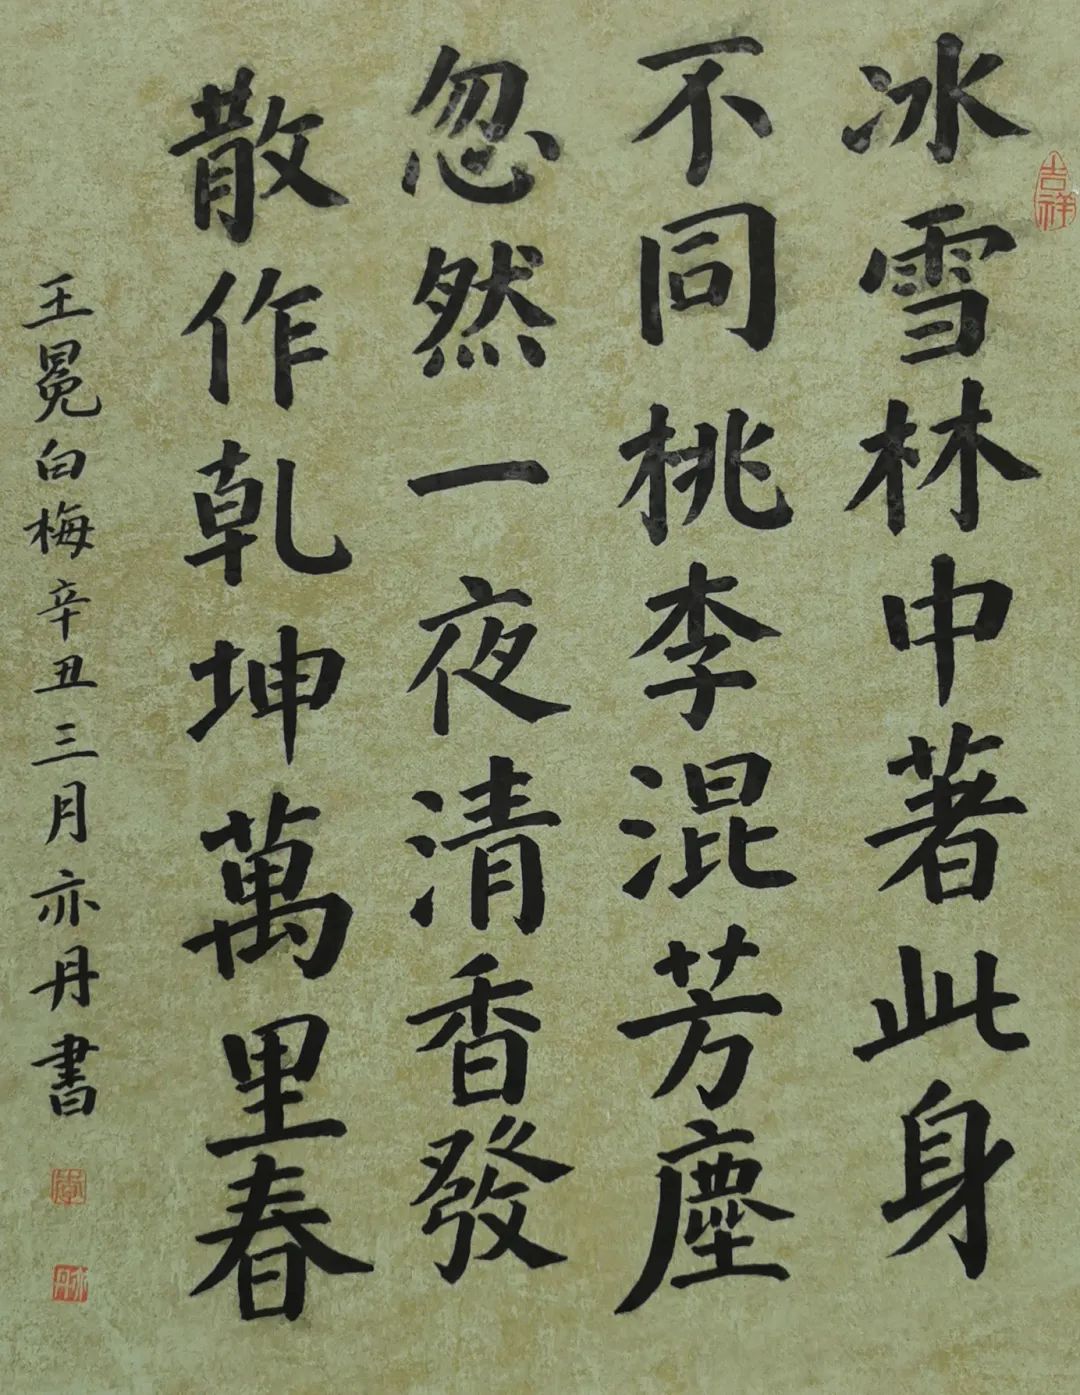 吉祥
冰雪林中著此身
不同桃李混芳塵
忽然一夜清香發
散作乾坤萬里春
王冕白梅辛丑三月亦丹書